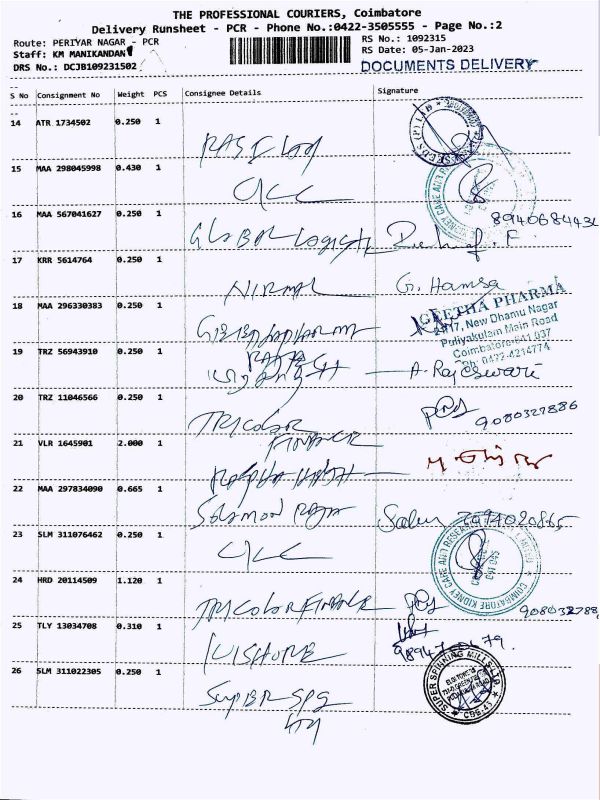 THE PROFESSIONAL COURIERS, Coimbatore
Delivery Runsheet - PCR - Phone No.:0422-3505555 - Page No.:2
Route: PERIYAR NAGAR - PCR
RS No.: 1092315
Staff: KM MANIKANDAN
RS Date: 05-Jan-2023
DRS No.: DCJB109231502
DOCUMENTS DELIVERY
S No Consignment No Weight PCS Consignee Details Signature
14 ATR 1734502 0.250 1
15 MAA 298045998 0.430 1
16 MAA 567041627 0.250 1
8940684434
GLOBAL LOGISTI
17 KRR 5614764 0.250 1
NIRMAL G. Hamsa
18 MAA 296330383 0.250 1
GEETHA PHARMA
2417, New Dhamu Nagar
Puliyakulam Main Road
Coimbatore-641 037
Ph: 0422-4214774
19 TRZ 56943910 0.250 1
A. Rajeswari
20 TRZ 11046566 0.250 1
TRICOLOR
FINANCE
9080327886
21 VLR 1645901 2.000 1
22 MAA 297834090 0.665 1
SOLOMON RAJA
23 SLM 311076462 0.250 1
COIMBATORE KIDNEY CARE AND RESEARCH
24 HRD 20114509 1.120 1
TRICOLOR FINANCE
908032788
25 TLY 13034708 0.310 1
KISHORE
26 SLM 311022305 0.250 1
SUPER SPG
SUPER SPINNING MILLS LTD
CBE-45